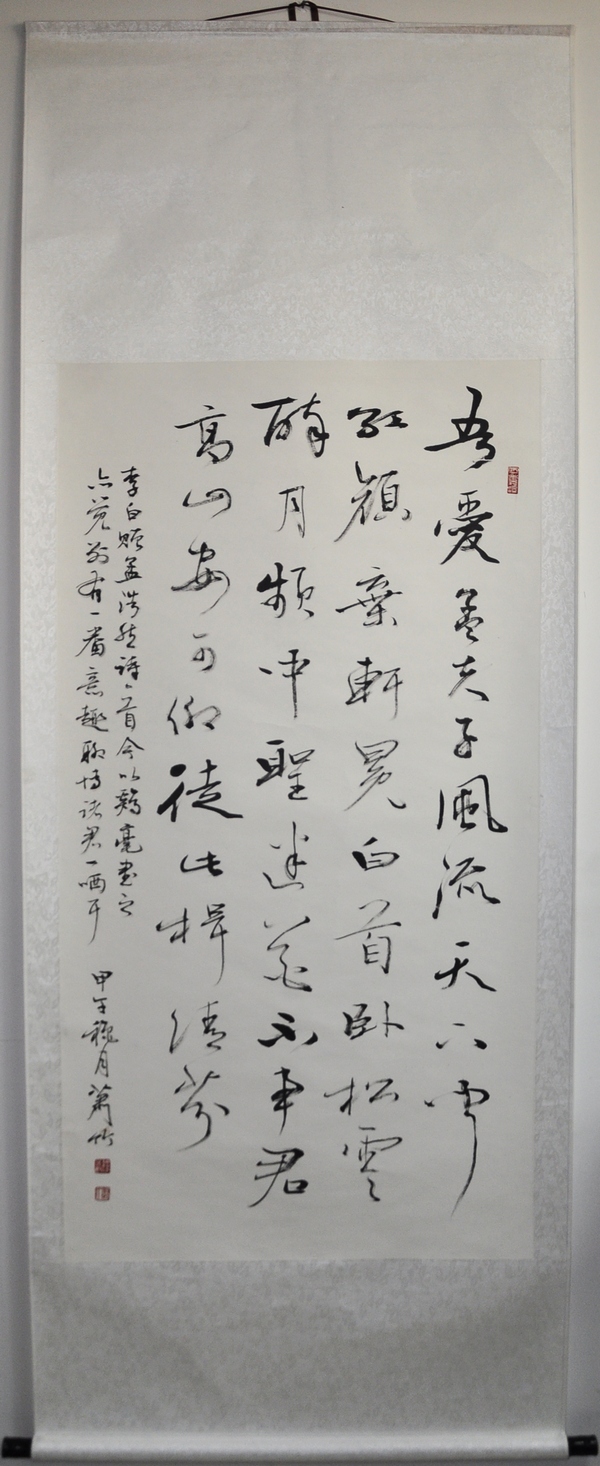 吾爱孟夫子风流天下闻
红颜弃轩冕白首卧松云
醉月频中圣迷花不事君
高山安可仰徒此揖清芬
李白赠孟浩然诗一首今以鸡毫书之
亦觉别有一番意趣聊博诸君一哂耳
甲午秋月萧竹